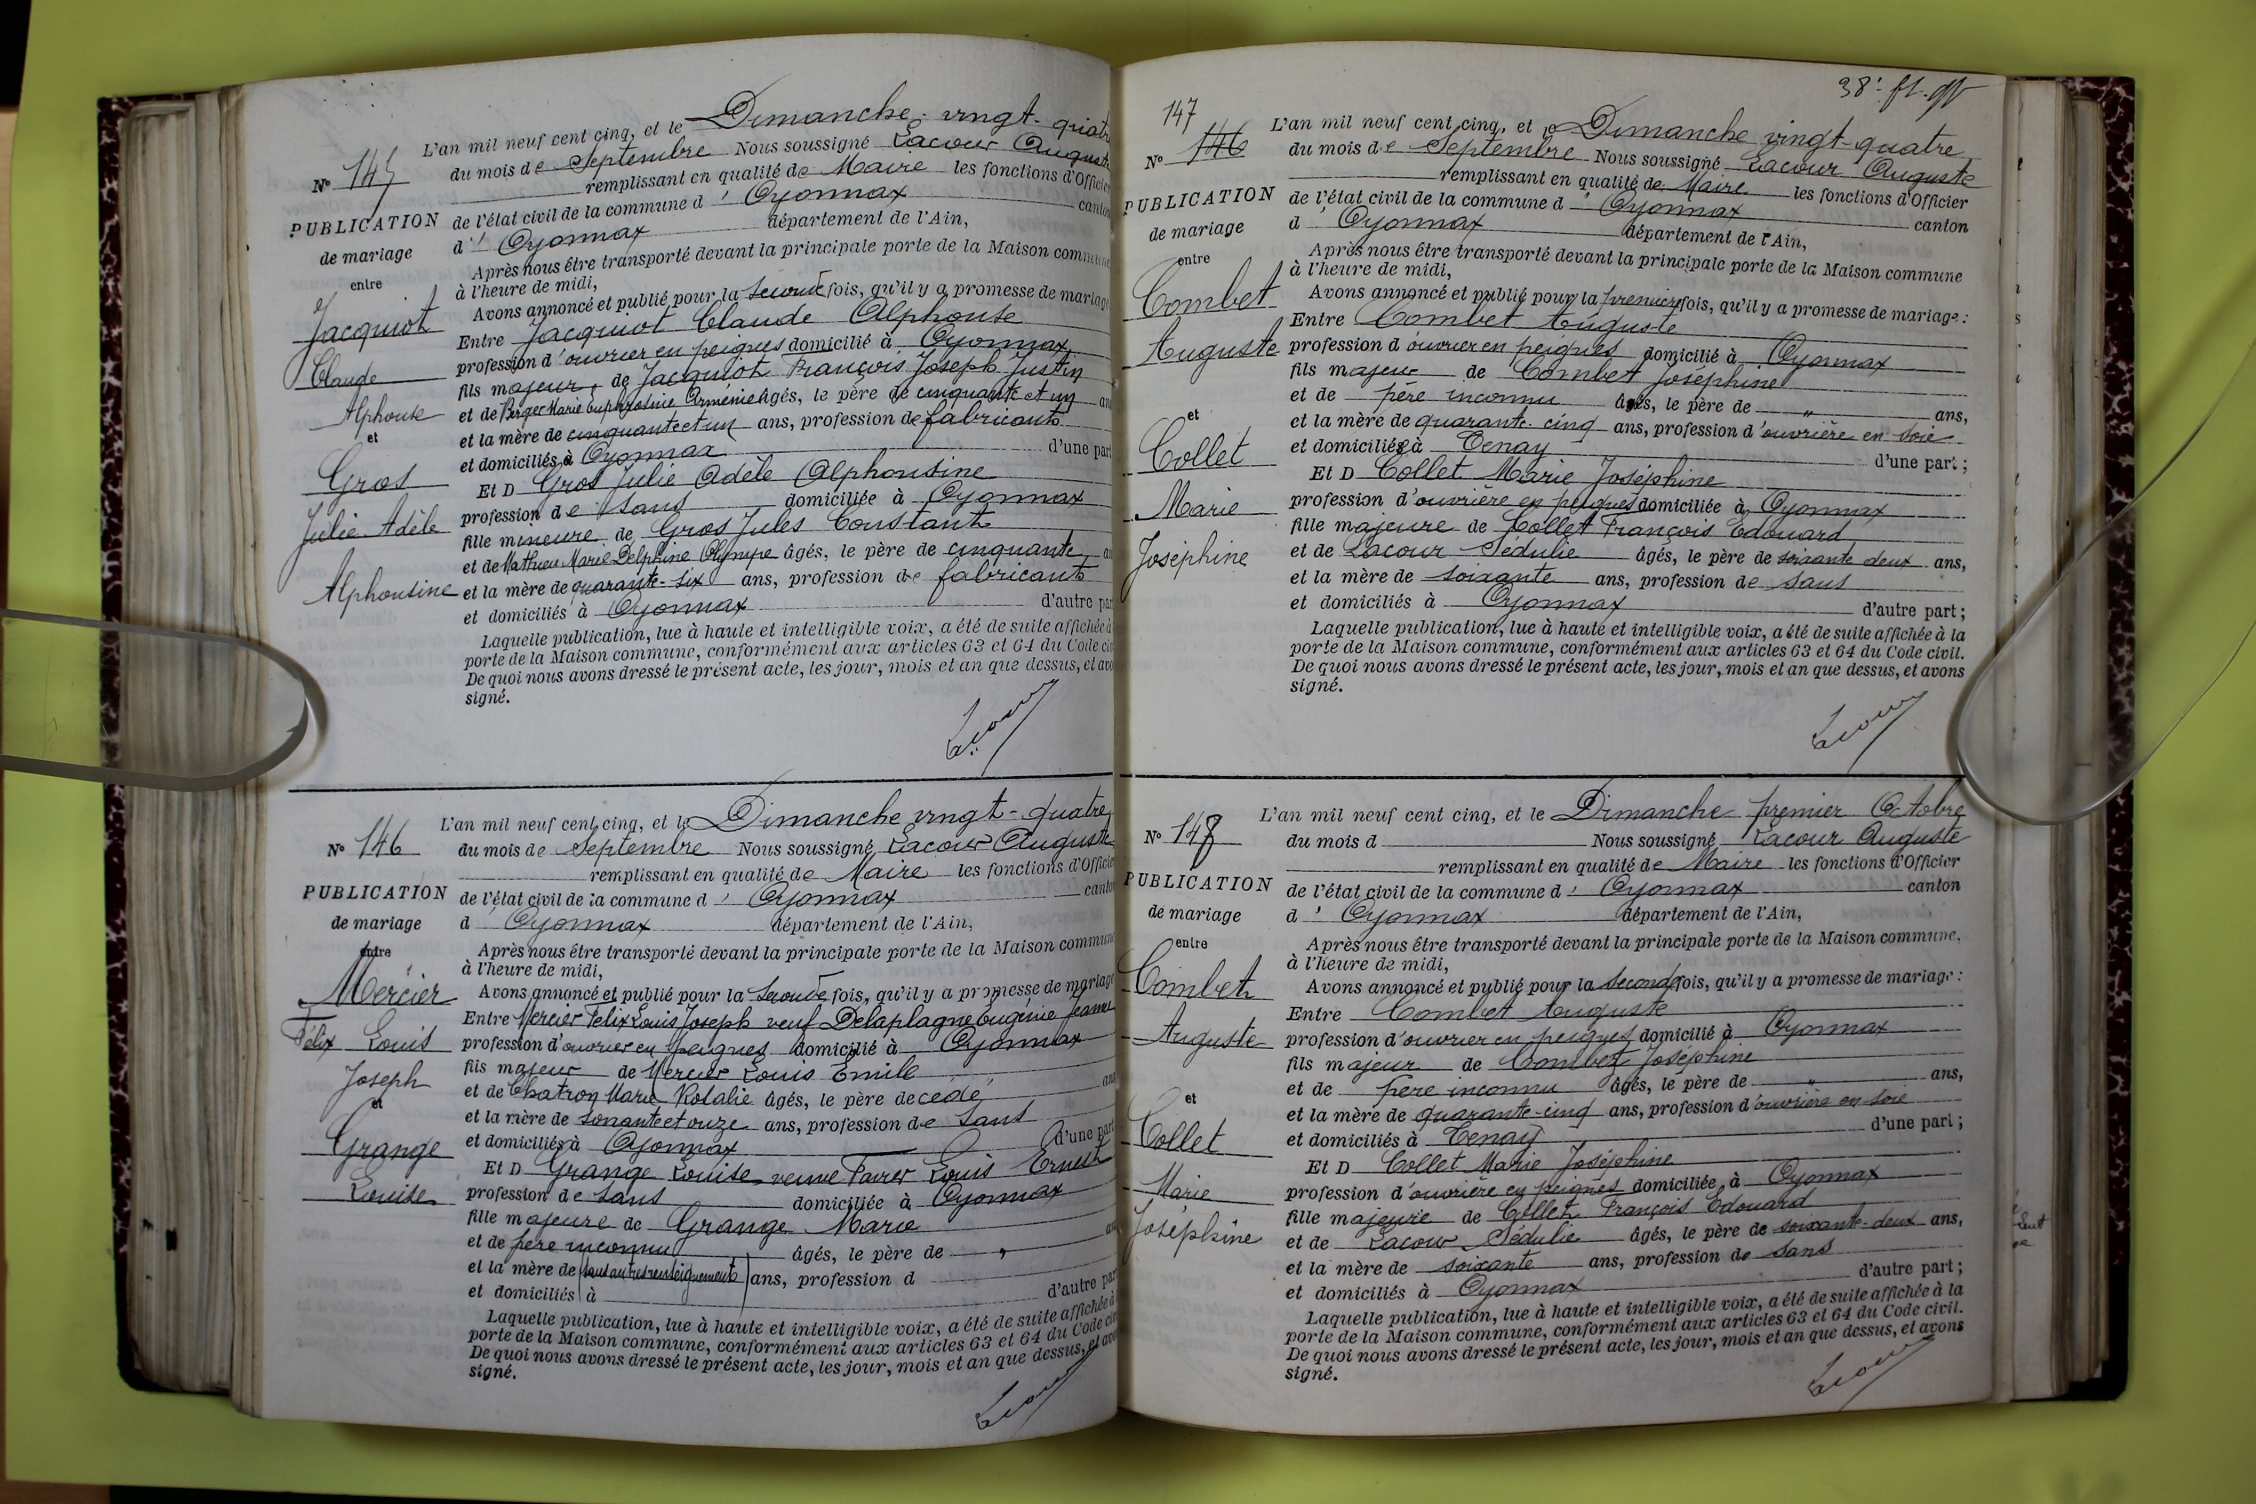 N° 145
PUBLICATION
de mariage
entre
Jacquiot
Claude
Alphonse
et
Gros
Julie Adèle
Alphonsine
L'an mil neuf cent cinq, et le Dimanche vingt-quatre
du mois de Septembre Nous soussigné Lacour Auguste
remplissant en qualité de Maire les fonctions d'Officier
de l'état civil de la commune d' Oyonnax canton
d' Oyonnax département de l'Ain,
Après nous être transporté devant la principale porte de la Maison commune
à l'heure de midi,
Avons annoncé et publié pour la seconde fois, qu'il y a promesse de mariage
Entre Jacquiot Claude Alphonse
profession d'ouvrier en peignes domicilié à Oyonnax
fils majeur de Jacquiot François Joseph Justin
et de Berger Marie Euphrosine Arménie âgés, le père de cinquante et un ans
et la mère de cinquante et un ans, profession de fabricants
et domiciliés à Oyonnax d'une part
Et D Gros Julie Adèle Alphonsine
profession de sans domiciliée à Oyonnax
fille mineure de Gros Jules Constant
et de Mathieu Marie Delphine Olympe âgés, le père de cinquante
et la mère de quarante-six ans, profession de fabricants
et domiciliés à Oyonnax d'autre part
Laquelle publication, lue à haute et intelligible voix, a été de suite affichée à
porte de la Maison commune, conformément aux articles 63 et 64 du Code civ
De quoi nous avons dressé le présent acte, les jour, mois et an que dessus, et avo
signé.
Lacour
N° 146
PUBLICATION
de mariage
entre
Mercier
Félix Louis
Joseph
et
Grange
Louise
L'an mil neuf cent cinq, et le Dimanche vingt-quatre
du mois de Septembre Nous soussigné Lacour Auguste
remplissant en qualité de Maire les fonctions d'Officier
de l'état civil de la commune d' Oyonnax canton
d' Oyonnax département de l'Ain,
Après nous être transporté devant la principale porte de la Maison commune
à l'heure de midi,
Avons annoncé et publié pour la seconde fois, qu'il y a promesse de mariage
Entre Mercier Félix Louis Joseph veuf Delaplagne Eugénie Jeanne
profession d'ouvrier en peignes domicilié à Oyonnax
fils majeur de Mercier Louis Emile
et de Chatron Marie Rosalie âgés, le père décédé ans
et la mère de soixante et onze ans, profession de sans
et domiciliés à Oyonnax d'une part
Et D Grange Louise veuve Favier Louis Ernest
profession de sans domiciliée à Oyonnax
fille majeure de Grange Marie
et de père inconnu âgés, le père de " ans
et la mère de (sans autres renseignements) ans, profession d
et domiciliés à d'autre part
Laquelle publication, lue à haute et intelligible voix, a été de suite affichée à
porte de la Maison commune, conformément aux articles 63 et 64 du Code civ
De quoi nous avons dressé le présent acte, les jour, mois et an que dessus, et avo
signé.
Lacour
38e ft.
147
N° 146
PUBLICATION
de mariage
entre
Combet
Auguste
et
Collet
Marie
Joséphine
L'an mil neuf cent cinq, et le Dimanche vingt-quatre
du mois de Septembre Nous soussigné Lacour Auguste
remplissant en qualité de Maire les fonctions d'Officier
de l'état civil de la commune d' Oyonnax canton
d' Oyonnax département de l'Ain,
Après nous être transporté devant la principale porte de la Maison commune
à l'heure de midi,
Avons annoncé et publié pour la première fois, qu'il y a promesse de mariage :
Entre Combet Auguste
profession d'ouvrier en peignes domicilié à Oyonnax
fils majeur de Combet Joséphine
et de père inconnu âgés, le père de " ans,
et la mère de quarante-cinq ans, profession d'ouvrière en soie
et domiciliée à Tenay d'une part ;
Et D Collet Marie Joséphine
profession d'ouvrière en peignes domiciliée à Oyonnax
fille majeure de Collet François Edouard
et de Lacour Sédulie âgés, le père de soixante deux ans,
et la mère de soixante ans, profession de sans
et domiciliés à Oyonnax d'autre part ;
Laquelle publication, lue à haute et intelligible voix, a été de suite affichée à la
porte de la Maison commune, conformément aux articles 63 et 64 du Code civil.
De quoi nous avons dressé le présent acte, les jour, mois et an que dessus, et avons
signé.
Lacour
N° 148
PUBLICATION
de mariage
entre
Combet
Auguste
et
Collet
Marie
Joséphine
L'an mil neuf cent cinq, et le Dimanche premier Octobre
du mois d Nous soussigné Lacour Auguste
remplissant en qualité de Maire les fonctions d'Officier
de l'état civil de la commune d' Oyonnax canton
d' Oyonnax département de l'Ain,
Après nous être transporté devant la principale porte de la Maison commune,
à l'heure de midi,
Avons annoncé et publié pour la seconde fois, qu'il y a promesse de mariage :
Entre Combet Auguste
profession d'ouvrier en peignes domicilié à Oyonnax
fils majeur de Combet Joséphine
et de père inconnu âgés, le père de " ans,
et la mère de quarante-cinq ans, profession d'ouvrière en soie
et domiciliés à Tenay d'une part ;
Et D Collet Marie Joséphine
profession d'ouvrière en peignes domiciliée à Oyonnax
fille majeure de Collet François Edouard
et de Lacour Sédulie âgés, le père de soixante-deux ans,
et la mère de soixante ans, profession de sans
et domiciliés à Oyonnax d'autre part ;
Laquelle publication, lue à haute et intelligible voix, a été de suite affichée à la
porte de la Maison commune, conformément aux articles 63 et 64 du Code civil.
De quoi nous avons dressé le présent acte, les jour, mois et an que dessus, et avons
signé.
Lacour